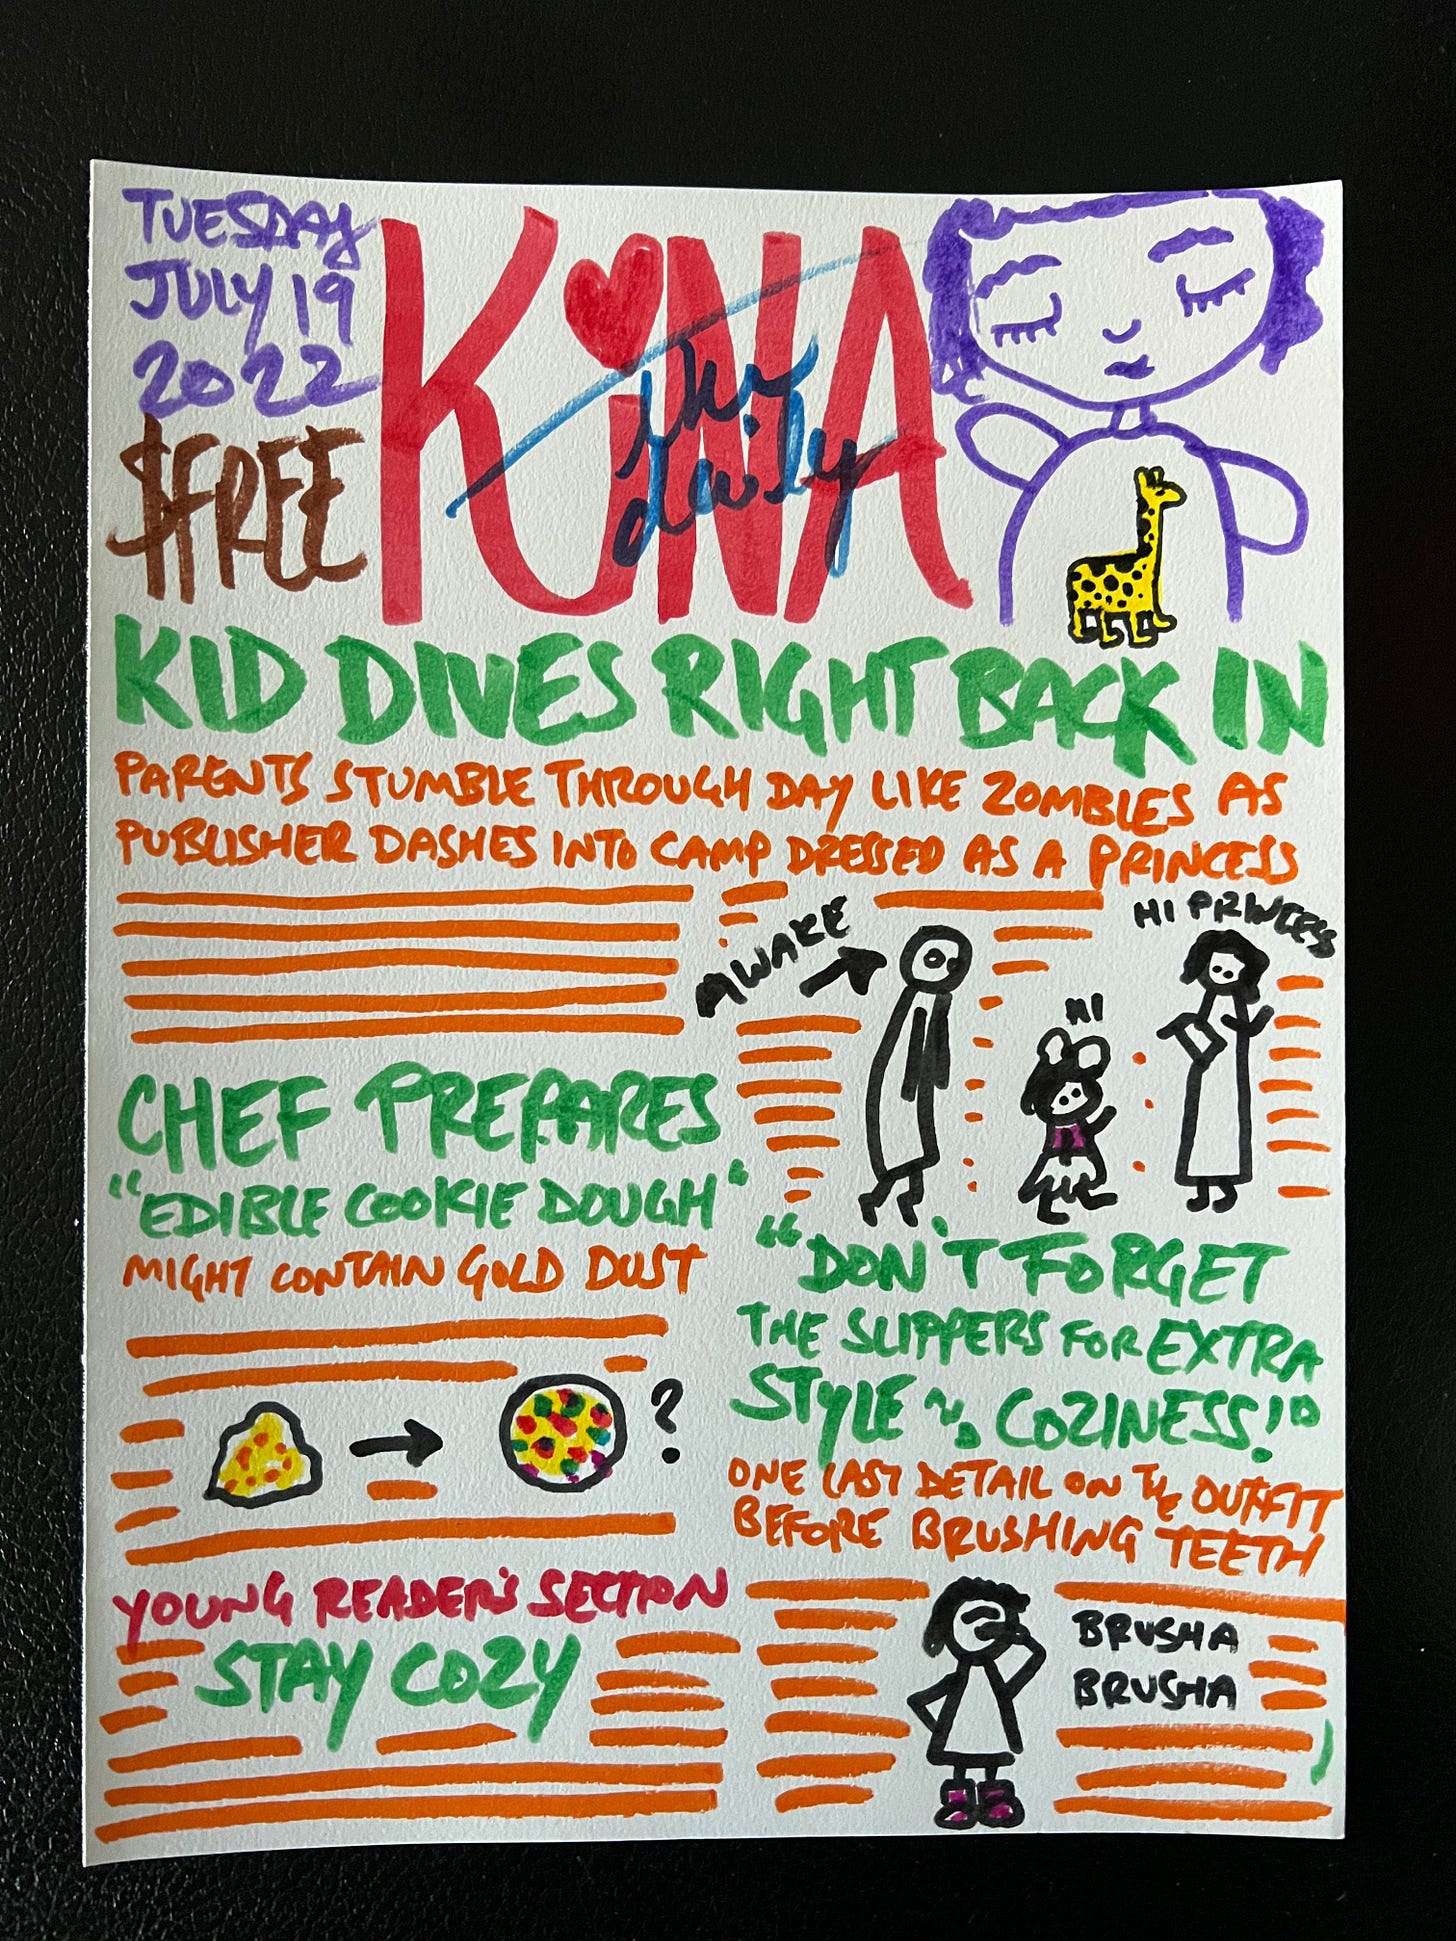 TUESDAY
JULY 19
2022
$FREE
KiNA
the
daily
KID DIVES RIGHT BACK IN
PARENTS STUMBLE THROUGH DAY LIKE ZOMBIES AS
PUBLISHER DASHES INTO CAMP DRESSED AS A PRINCESS
AWAKE
HI
HI PRINCESS
CHEF PREPARES
"EDIBLE COOKIE DOUGH"
MIGHT CONTAIN GOLD DUST
?
"DON'T FORGET
THE SLIPPERS FOR EXTRA
STYLE 'N COZINESS!"
ONE LAST DETAIL ON THE OUTFIT
BEFORE BRUSHING TEETH
BRUSHA
BRUSHA
YOUNG READER'S SECTION
STAY COZY